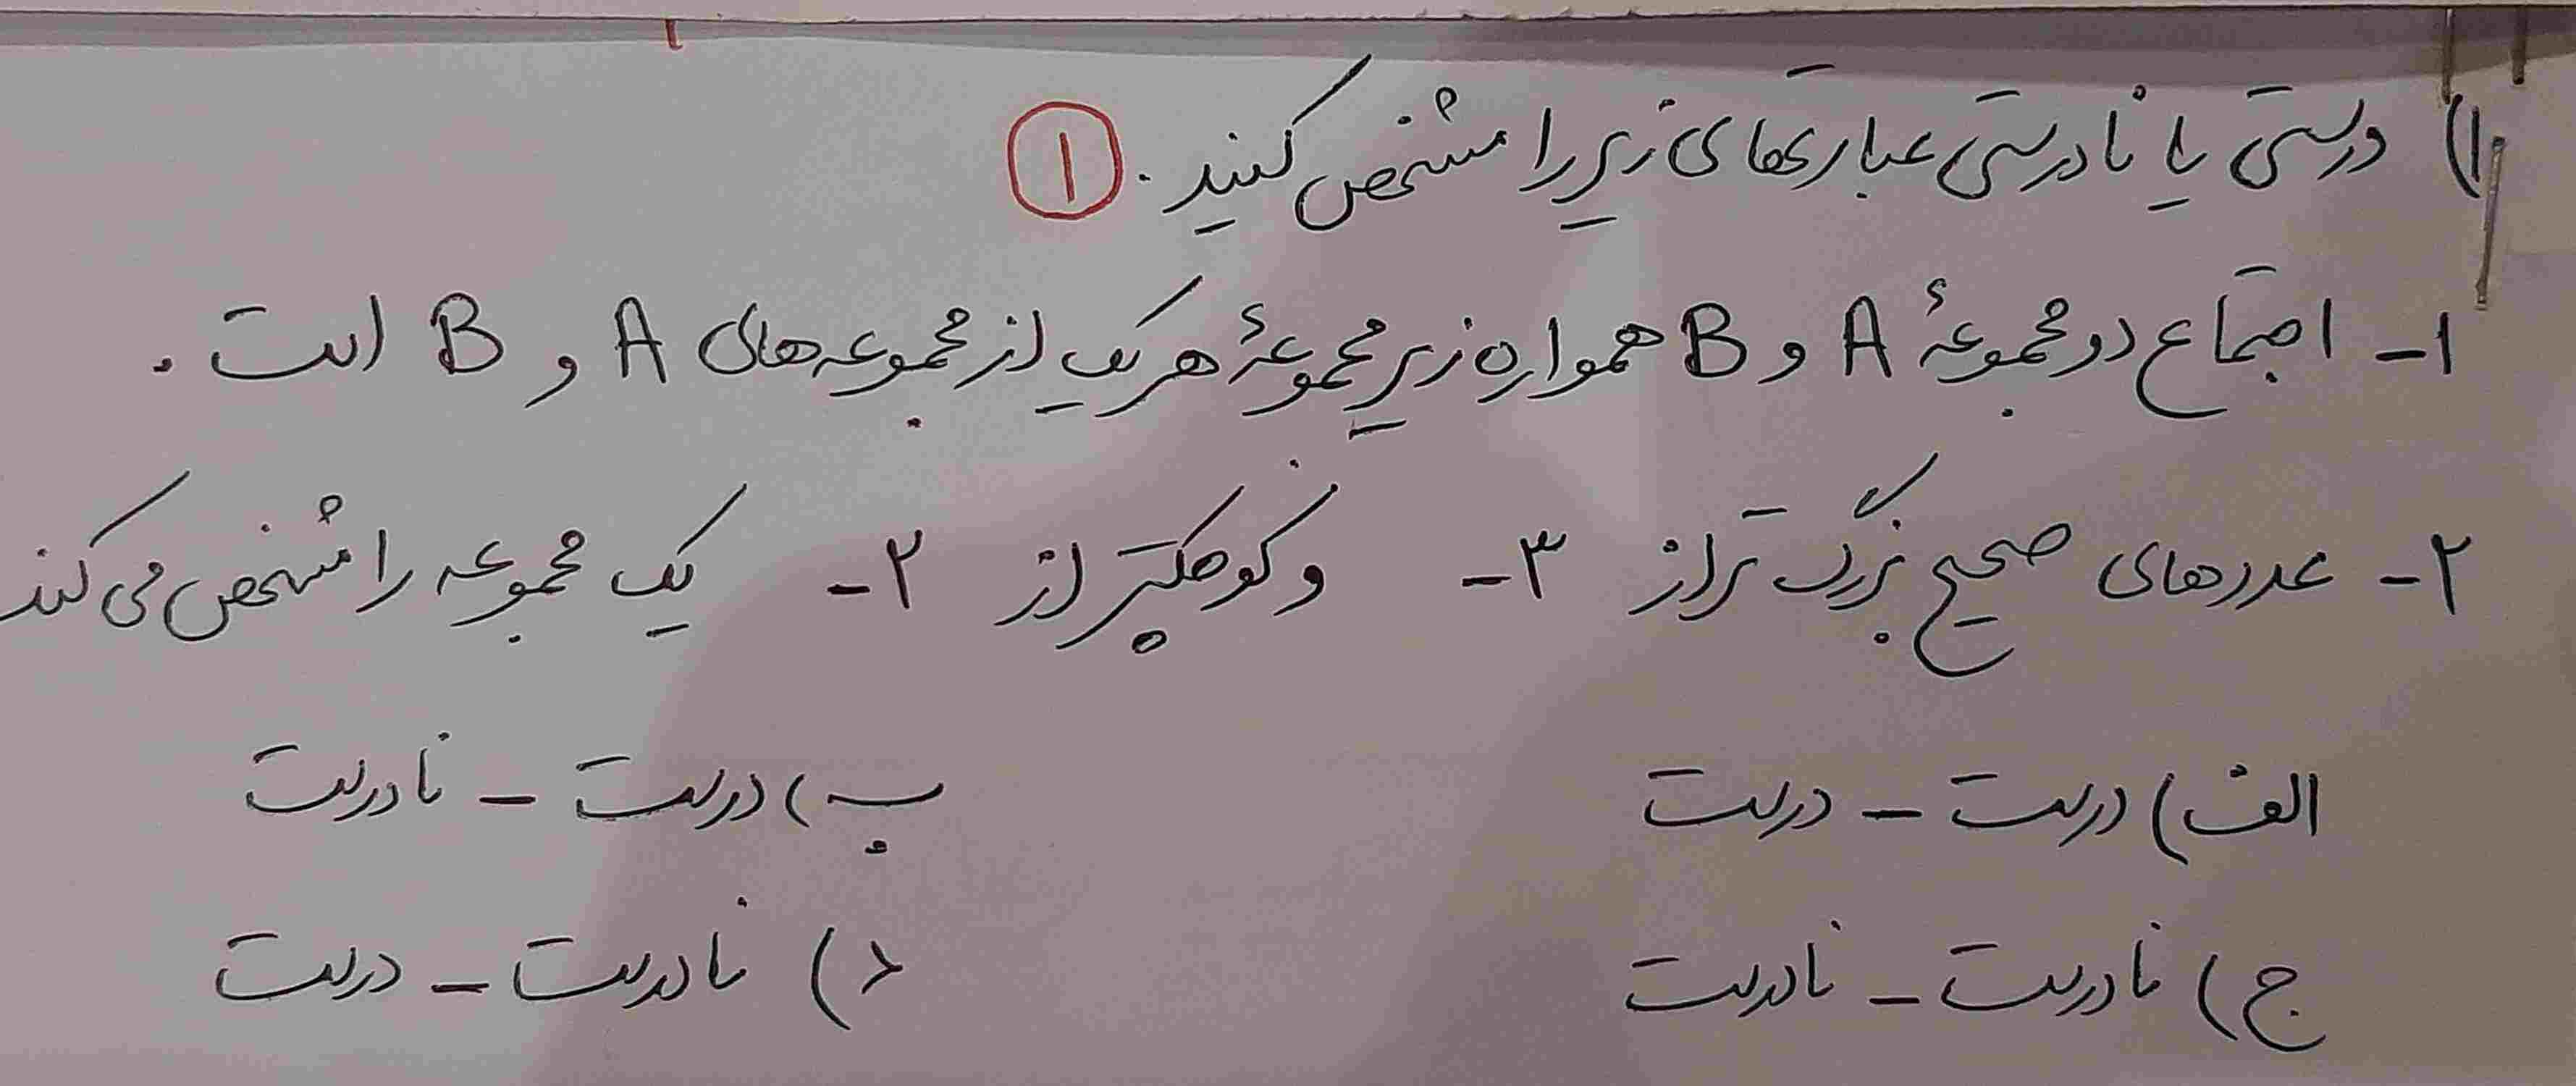 ۱) درستی یا نادرستی عبارت‌های زیر را مشخص کنید. ۱
۱- اجتماع دو مجموعهٔ A و B همواره زیر مجموعهٔ هر یک از مجموعه‌های A و B است.
۲- عددهای صحیح بزرگ تر از ۳- و کوچکتر از ۲- یک مجموعه را مشخص می کند
الف) درست - درست ب) درست - نادرست
ج) نادرست - نادرست د) نادرست - درست